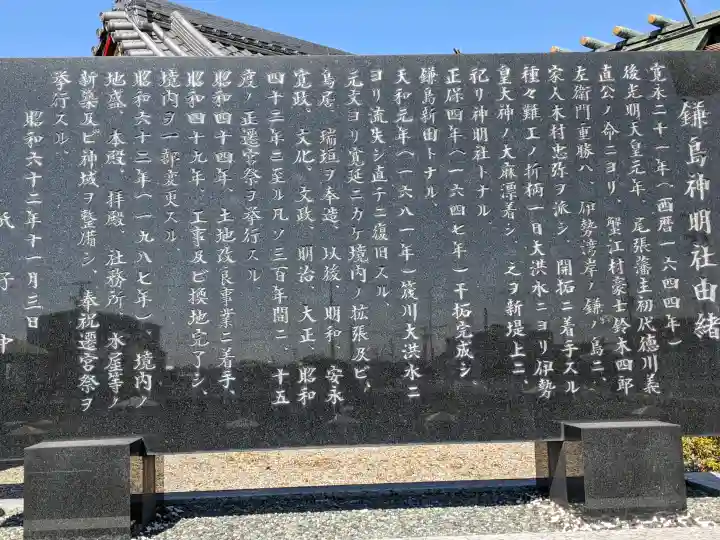 鎌島神明社由緒
寛永二十一年(西暦一六四四年)
後光明天皇元年、尾張藩主初代徳川義
直公ノ命ニヨリ、蟹江村豪士鈴木四郎
左衛門重勝ハ、伊勢湾岸ノ鎌ノ島ニ、
家人木村忠弥ヲ派シ、開拓ニ着手スル
種々難工ノ折柄一日大洪水ニヨリ伊勢
皇大神ノ大麻漂着シ、之ヲ新堤上ニ、
祀リ神明社トナル
正保四年(一六四七年)干拓完成シ、
鎌島新田トナル、
天和元年(一六八一年)筏川大洪水ニ
ヨリ流失シ直チニ復旧スル、
元文ヨリ寛延ニカケ境内ノ拡張及ビ、
鳥居、瑞垣ヲ奉造、以後、明和、安永
寛政、文化、文政、明治、大正、昭和
四十三年ニ至ル凡ソ三百年間ニ、十五
度ノ正遷宮祭ヲ挙行スル
昭和四十四年、土地改良事業ニ着手、
昭和四十九年、工事及ビ換地完了シ、
境内ヲ一部変更スル、
昭和六十二年(一九八七年)、境内ノ
地盛、本殿、拝殿、社務所、水屋等ノ
新築及ビ神域ヲ整備シ、奉祝遷宮祭ヲ
挙行スル、
昭和六十二年十一月三日
氏子中